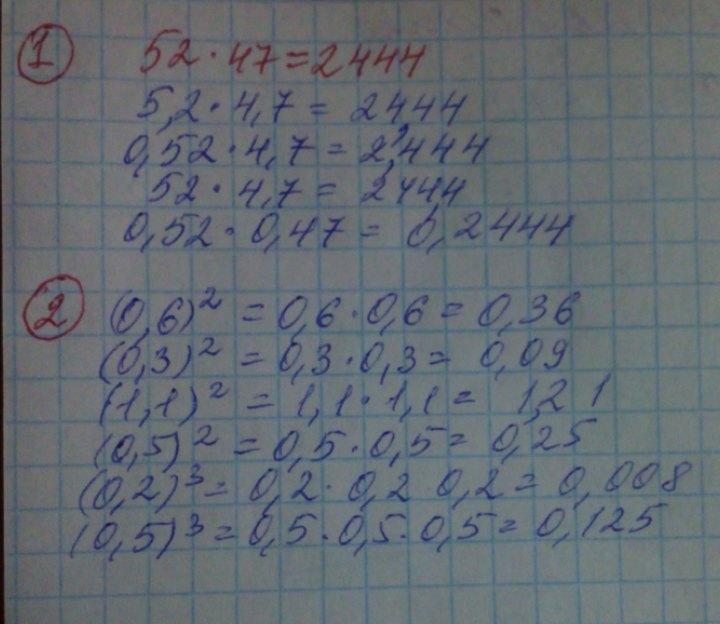 1 52 · 47 = 2444
5,2 · 4,7 = 24,44
0,52 · 4,7 = 2,444
52 · 4,7 = 2,444
0,52 · 0,47 = 0,2444
2 (0,6)² = 0,6 · 0,6 = 0,36
(0,3)² = 0,3 · 0,3 = 0,09
(1,1)² = 1,1 · 1,1 = 1,21
(0,5)² = 0,5 · 0,5 = 0,25
(0,2)³ = 0,2 · 0,2 0,2 = 0,008
(0,5)³ = 0,5 · 0,5 · 0,5 = 0,125